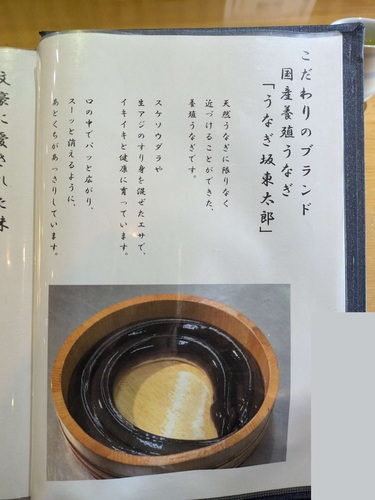 こだわりのブランド
国産養殖うなぎ
「うなぎ坂東太郎」
天然うなぎに限りなく
近づけることができた、
養殖うなぎです。
スケソウダラや
生アジのすり身を混ぜたエサで、
イキイキと健康に育っています。
口の中でパッと広がり、
スーッと消えるように、
あとくちがあっさりしています。
文豪に愛された味